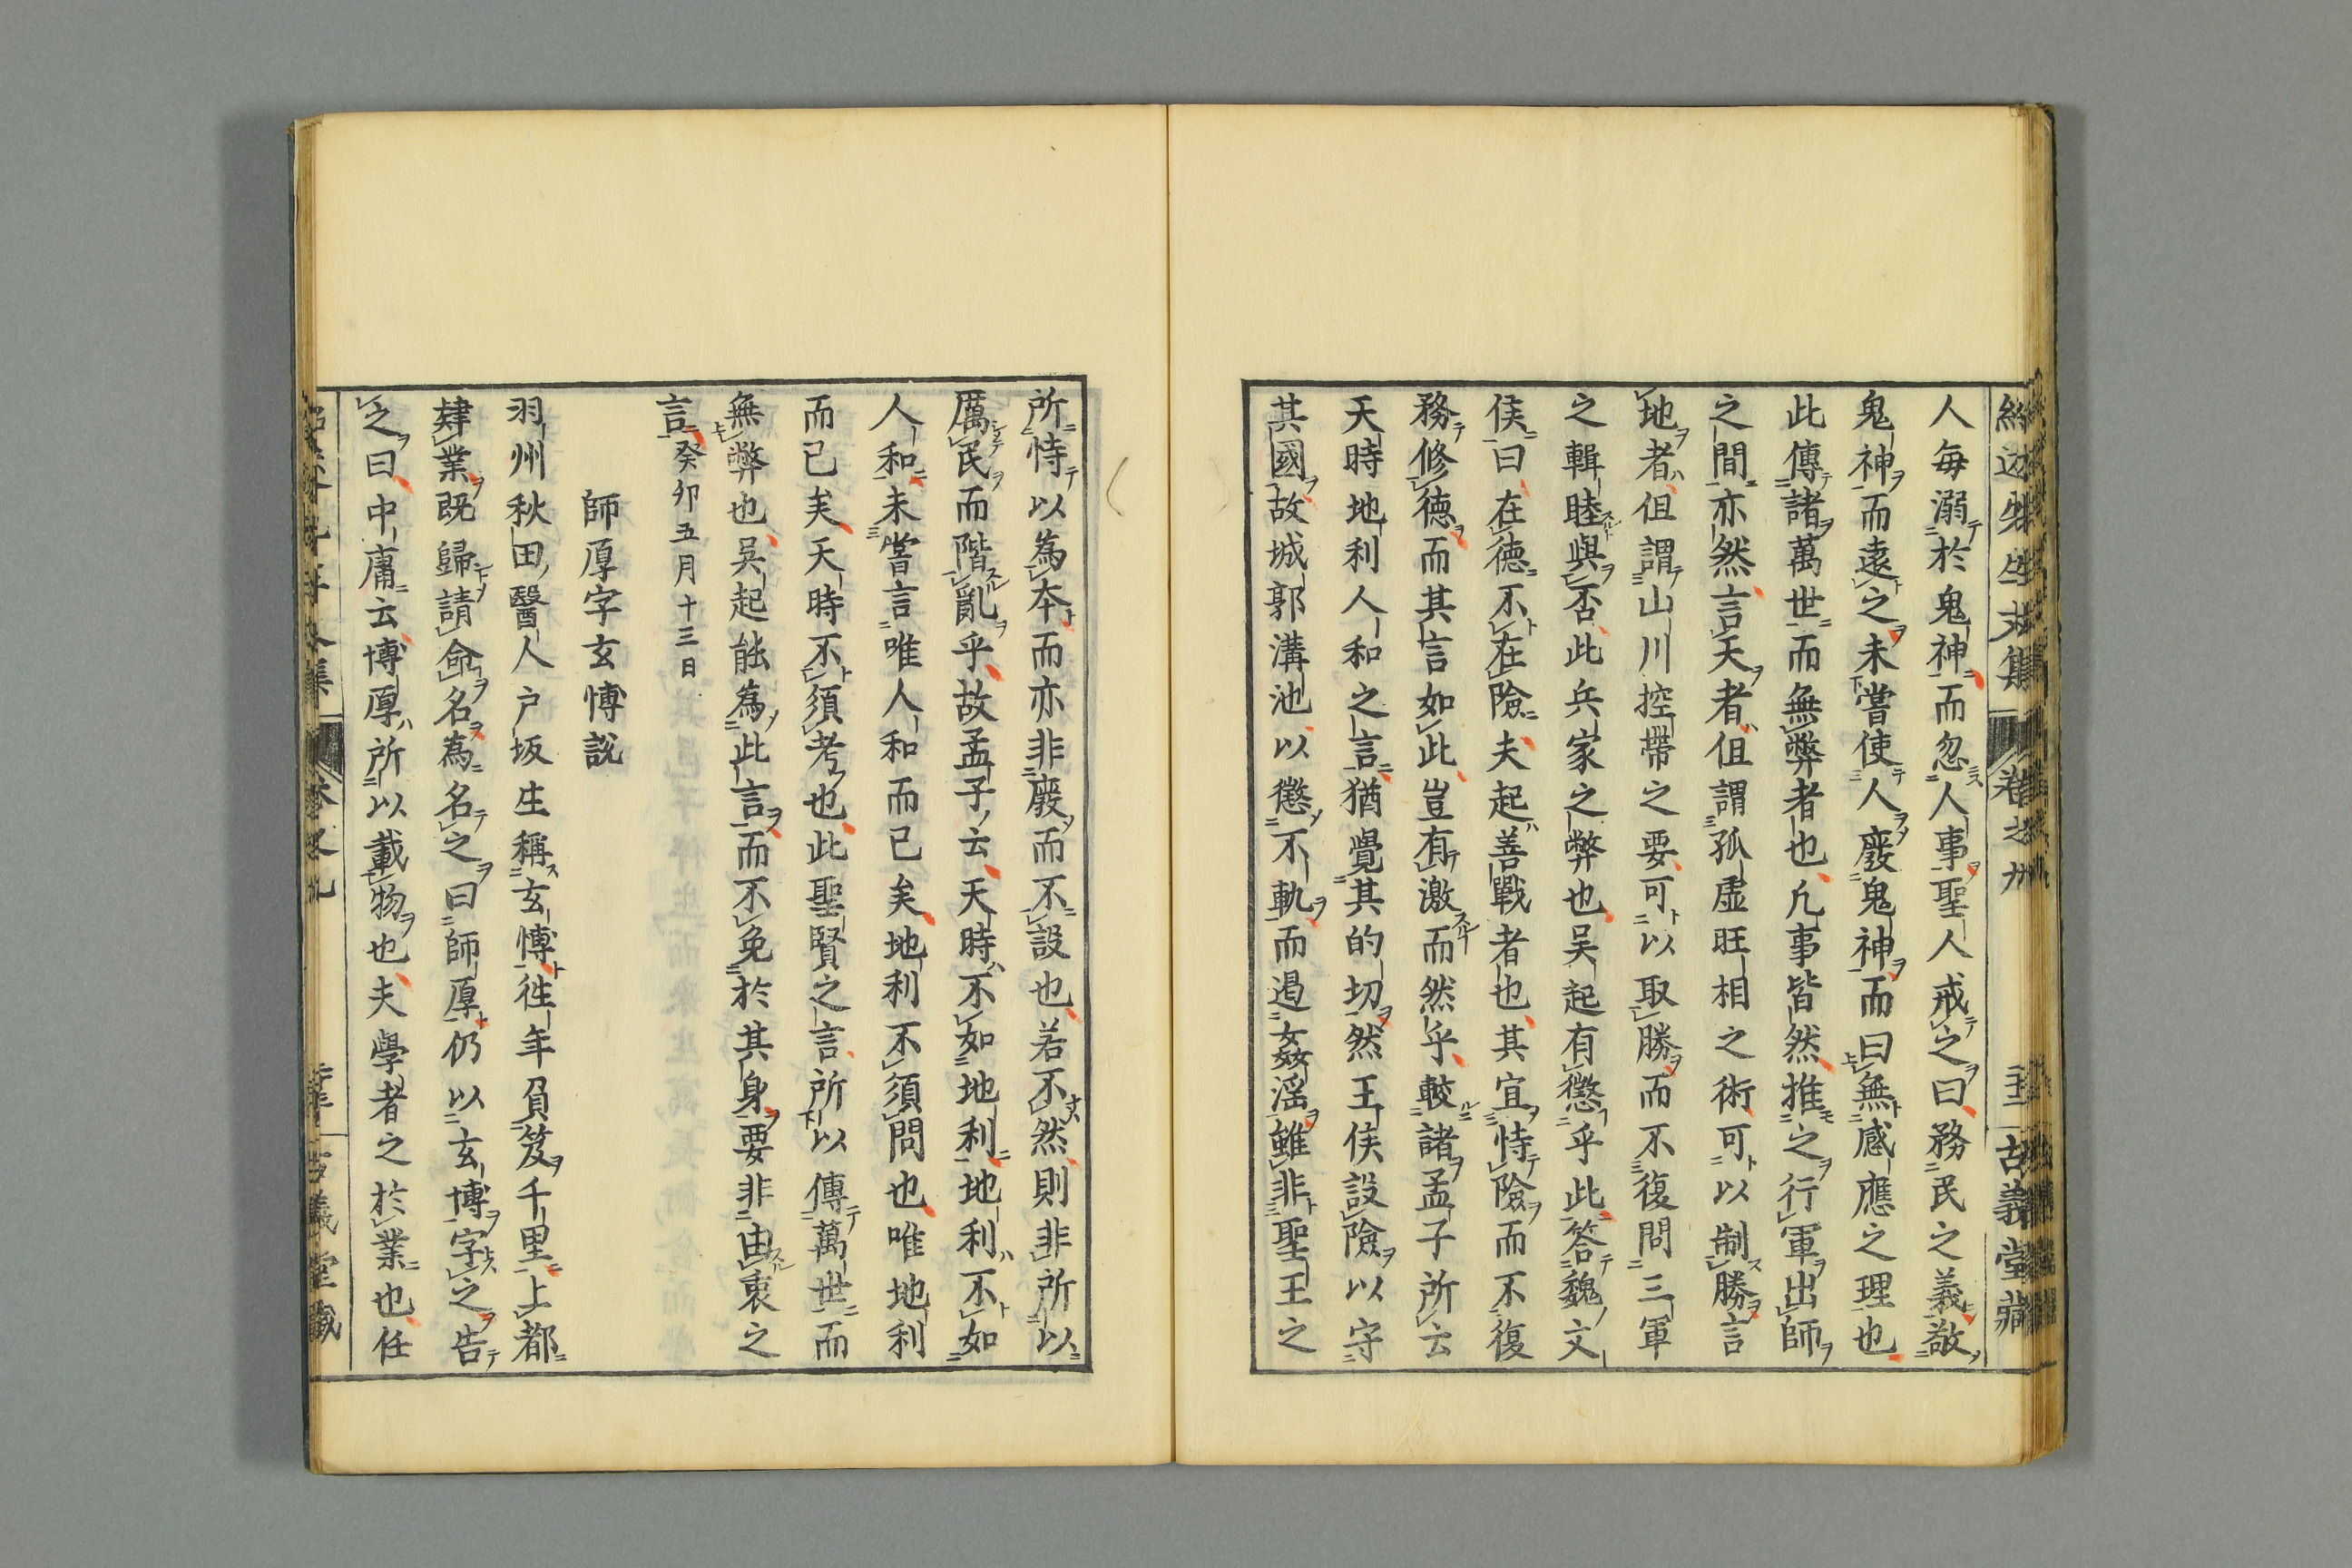 人毎溺於鬼神而忽人事聖人戒之曰務民之義敬
鬼神而遠之未嘗使人廢鬼神而曰無感應之理也
此傳諸萬世而無弊者也凡事皆然推之行軍出師
之間亦然言天者但謂孤虚旺相之術可以制勝言
地者但謂山川控帶之要可以取勝而不復問三軍
之輯睦與否此兵家之弊也吴起有懲乎此答魏文
侯曰在德不在險夫起善戰者也其宜恃險而不復
務修徳而其言如此豈有激而然乎較諸孟子所云
天時地利人和之言猶覺其的切然王侯設險以守
其國故城郭溝池以懲不軌而遏姦滛雖非聖王之
所恃以為本而亦非廢而不設也若不然則非所以
厲民而階亂乎故孟子云天時不如地利地利不如
人和未嘗言唯人和而已矣地利不須問也唯地利
而已矣天時不須考也此聖賢之言所以傳萬世而
無弊也吴起能為此言而不免於其身要非由衷之
言癸卯五月十三日
師厚字玄博説
羽州秋田醫人戸坂生稱玄博徃年負笈千里上都
肄業既歸請命名為名之曰師厚仍以玄博字之告
之曰中庸云博厚所以載物也夫學者之於業也任
古義堂藏